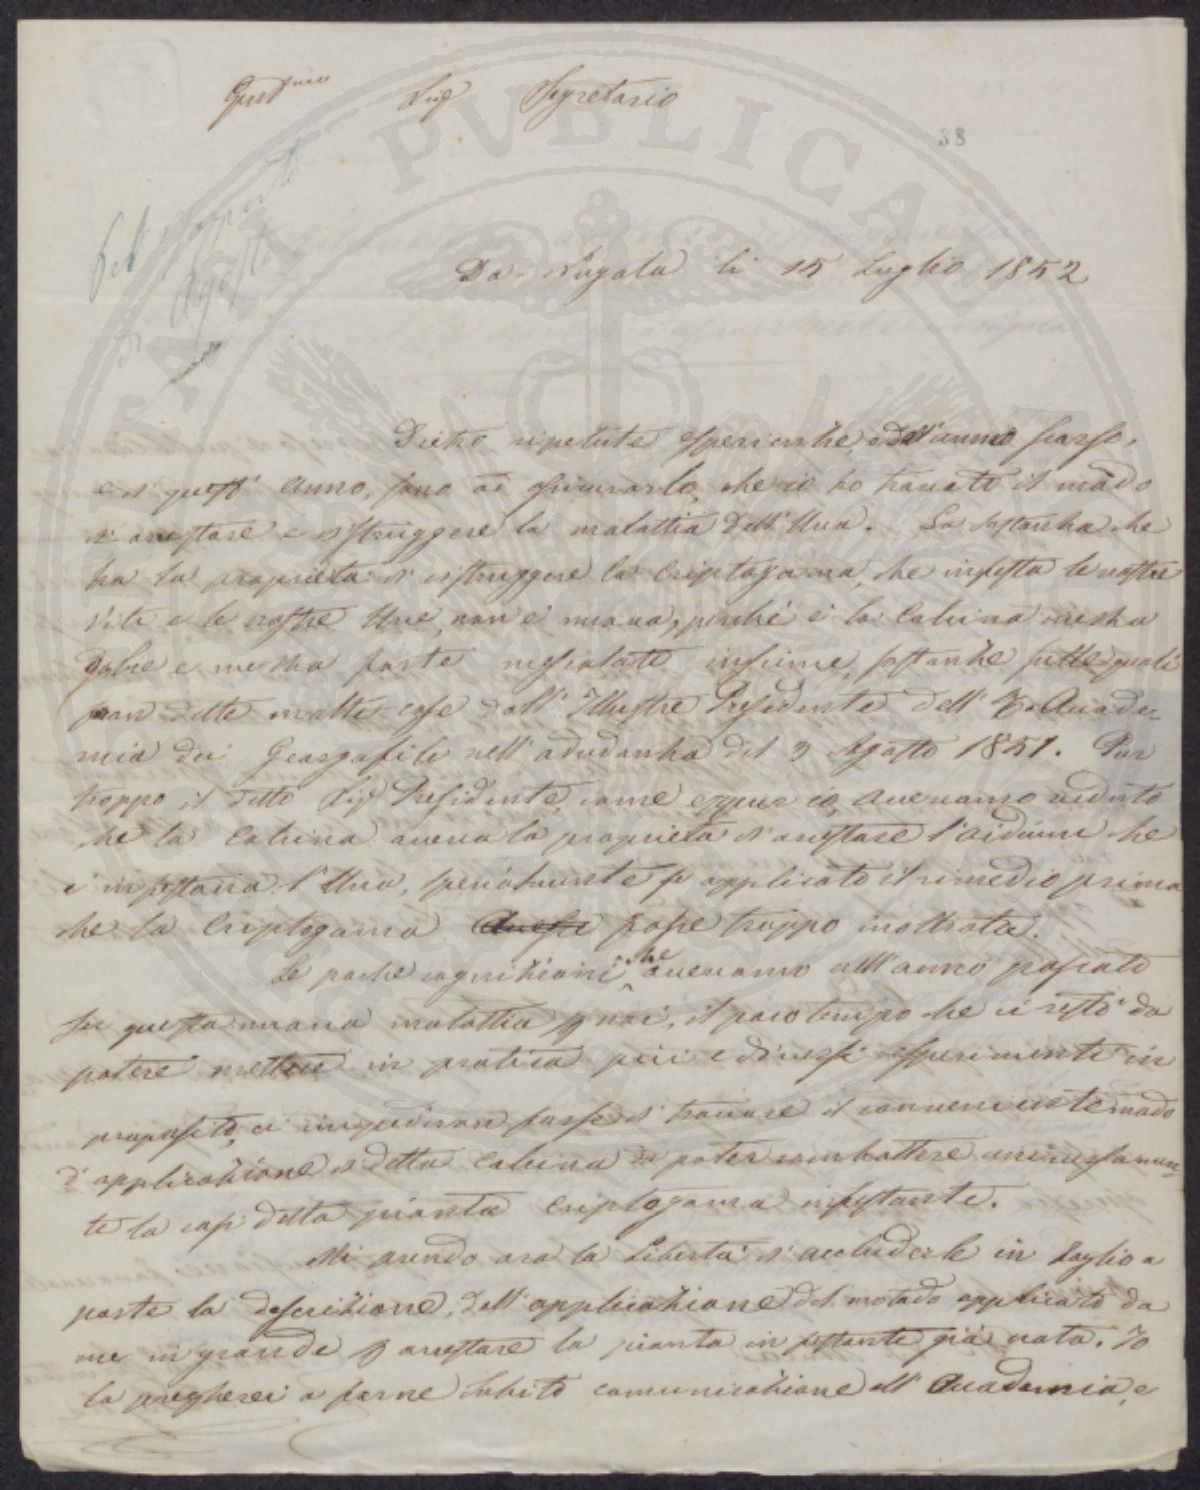 Sig.e Segretario
38
Da Nugola li 15 Luglio 1852
Dietro ripetute esperienze, dell'anno scorso,
e di quest'anno, sono ad assicurarlo, che io ho trovato il modo
di arrestare e distruggere la malattia dell'Uva. La sostanza che
ha la proprietà di distruggere la Criptogama, che infesta le nostre
Vite e le nostre Uve, non è nuova, perché è la Calcina mezza
Zolfo e mezza parte mescolate insieme, sostanze sulle quali
furon dette molte cose dall'Illustre Presidente dell' I. Accade-
mia dei Georgofili nell'adunanza del 3 Agosto 1851. Pur
troppo il detto Sig.e Presidente, come io, avevamo veduto
che la Calcina aveva la proprietà d'arrestare l'oidium che
infestava l'Uva, specialmente se applicato il rimedio prima
che la Criptogama fosse troppo inoltrata.
Le poche cognizioni che avevamo nell'anno passato
su questa nuova malattia p noi, il poco tempo che ci restò da
potere mettere in pratica più e diversi esperimenti in
proposito, ci impedirono forse di trovare il conveniente modo
d'applicazione di detta Calcina da poter combattere
te la così detta pianta Criptogama infestante.
Mi prendo ora la Libertà di accluderle in foglio a
parte la descrizione, dell'applicazione del metodo applicato da
me in grande p arrestare la pianta infestante già nata. Io
la pregherei a farne subito comunicazione all'Accademia, e